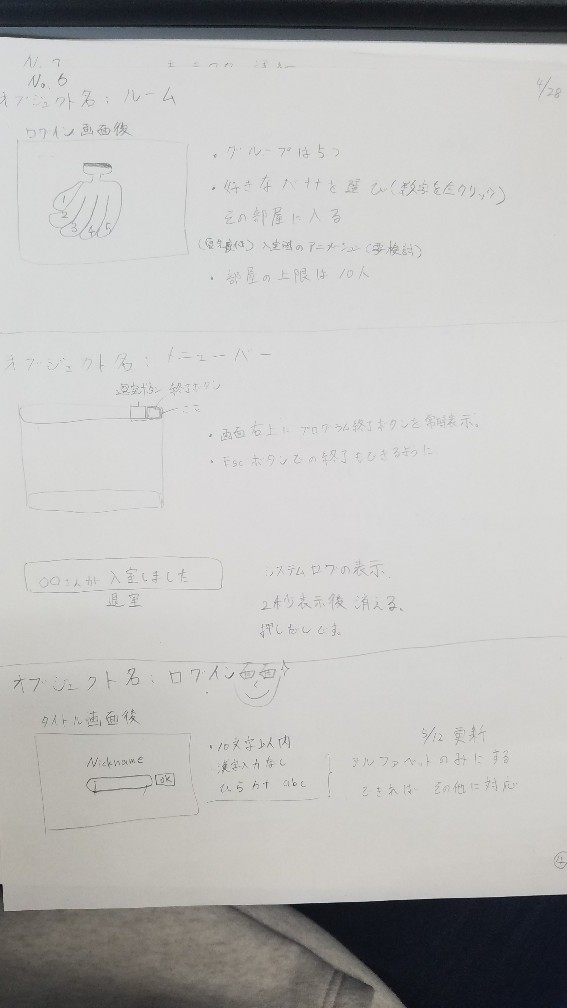 No.6
4/28
オブジェクト名：ルーム
ログイン画面後
1
2
3
4
5
・グループは5つ
・好きなだけを選び(数字を左クリック)
その部屋に入る
入室時のアニメーション(要検討)
・部屋の上限は10人
オブジェクト名：メニューバー
退室ボタン 終了ボタン
ここ
・画面右上にプログラム終了ボタンを常時表示。
・Escボタンでの終了もできるように
○○さんが入室しました
退室
システムログの表示
2秒表示後消える。
押し出しです。
オブジェクト名：ログイン画面
タイトル画面後
Nickname
OK
・10文字以内
漢字入力なし
ひらカナ abc
5/12 更新
アルファベットのみにする
できれば その他に対応
4